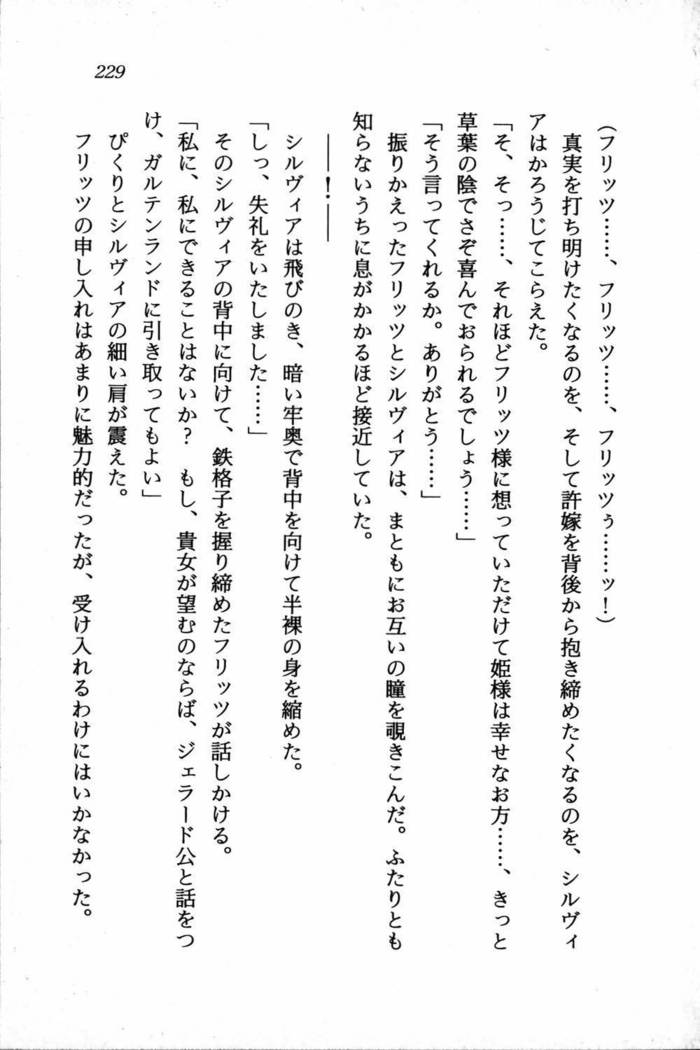 229
(フリッツ……、フリッツ……、フリッツぅ……ッ！)
　真実を打ち明けたくなるのを、そして許嫁を背後から抱き締めたくなるのを、シルヴィ
アはかろうじてこらえた。
「そ、そっ……、それほどフリッツ様に想っていただけて姫様は幸せなお方……、きっと
草葉の陰でさぞ喜んでおられるでしょう……」
「そう言ってくれるか。ありがとう……」
　振りかえったフリッツとシルヴィアは、まともにお互いの瞳を覗きこんだ。ふたりとも
知らないうちに息がかかるほど接近していた。
　――！――
　シルヴィアは飛びのき、暗い牢奥で背中を向けて半裸の身を縮めた。
「しっ、失礼をいたしました……」
　そのシルヴィアの背中に向けて、鉄格子を握り締めたフリッツが話しかける。
「私に、私にできることはないか？　もし、貴女が望むのならば、ジェラード公と話をつ
け、ガルテンランドに引き取ってもよい」
　ぴくりとシルヴィアの細い肩が震えた。
　フリッツの申し入れはあまりに魅力的だったが、受け入れるわけにはいかなかった。